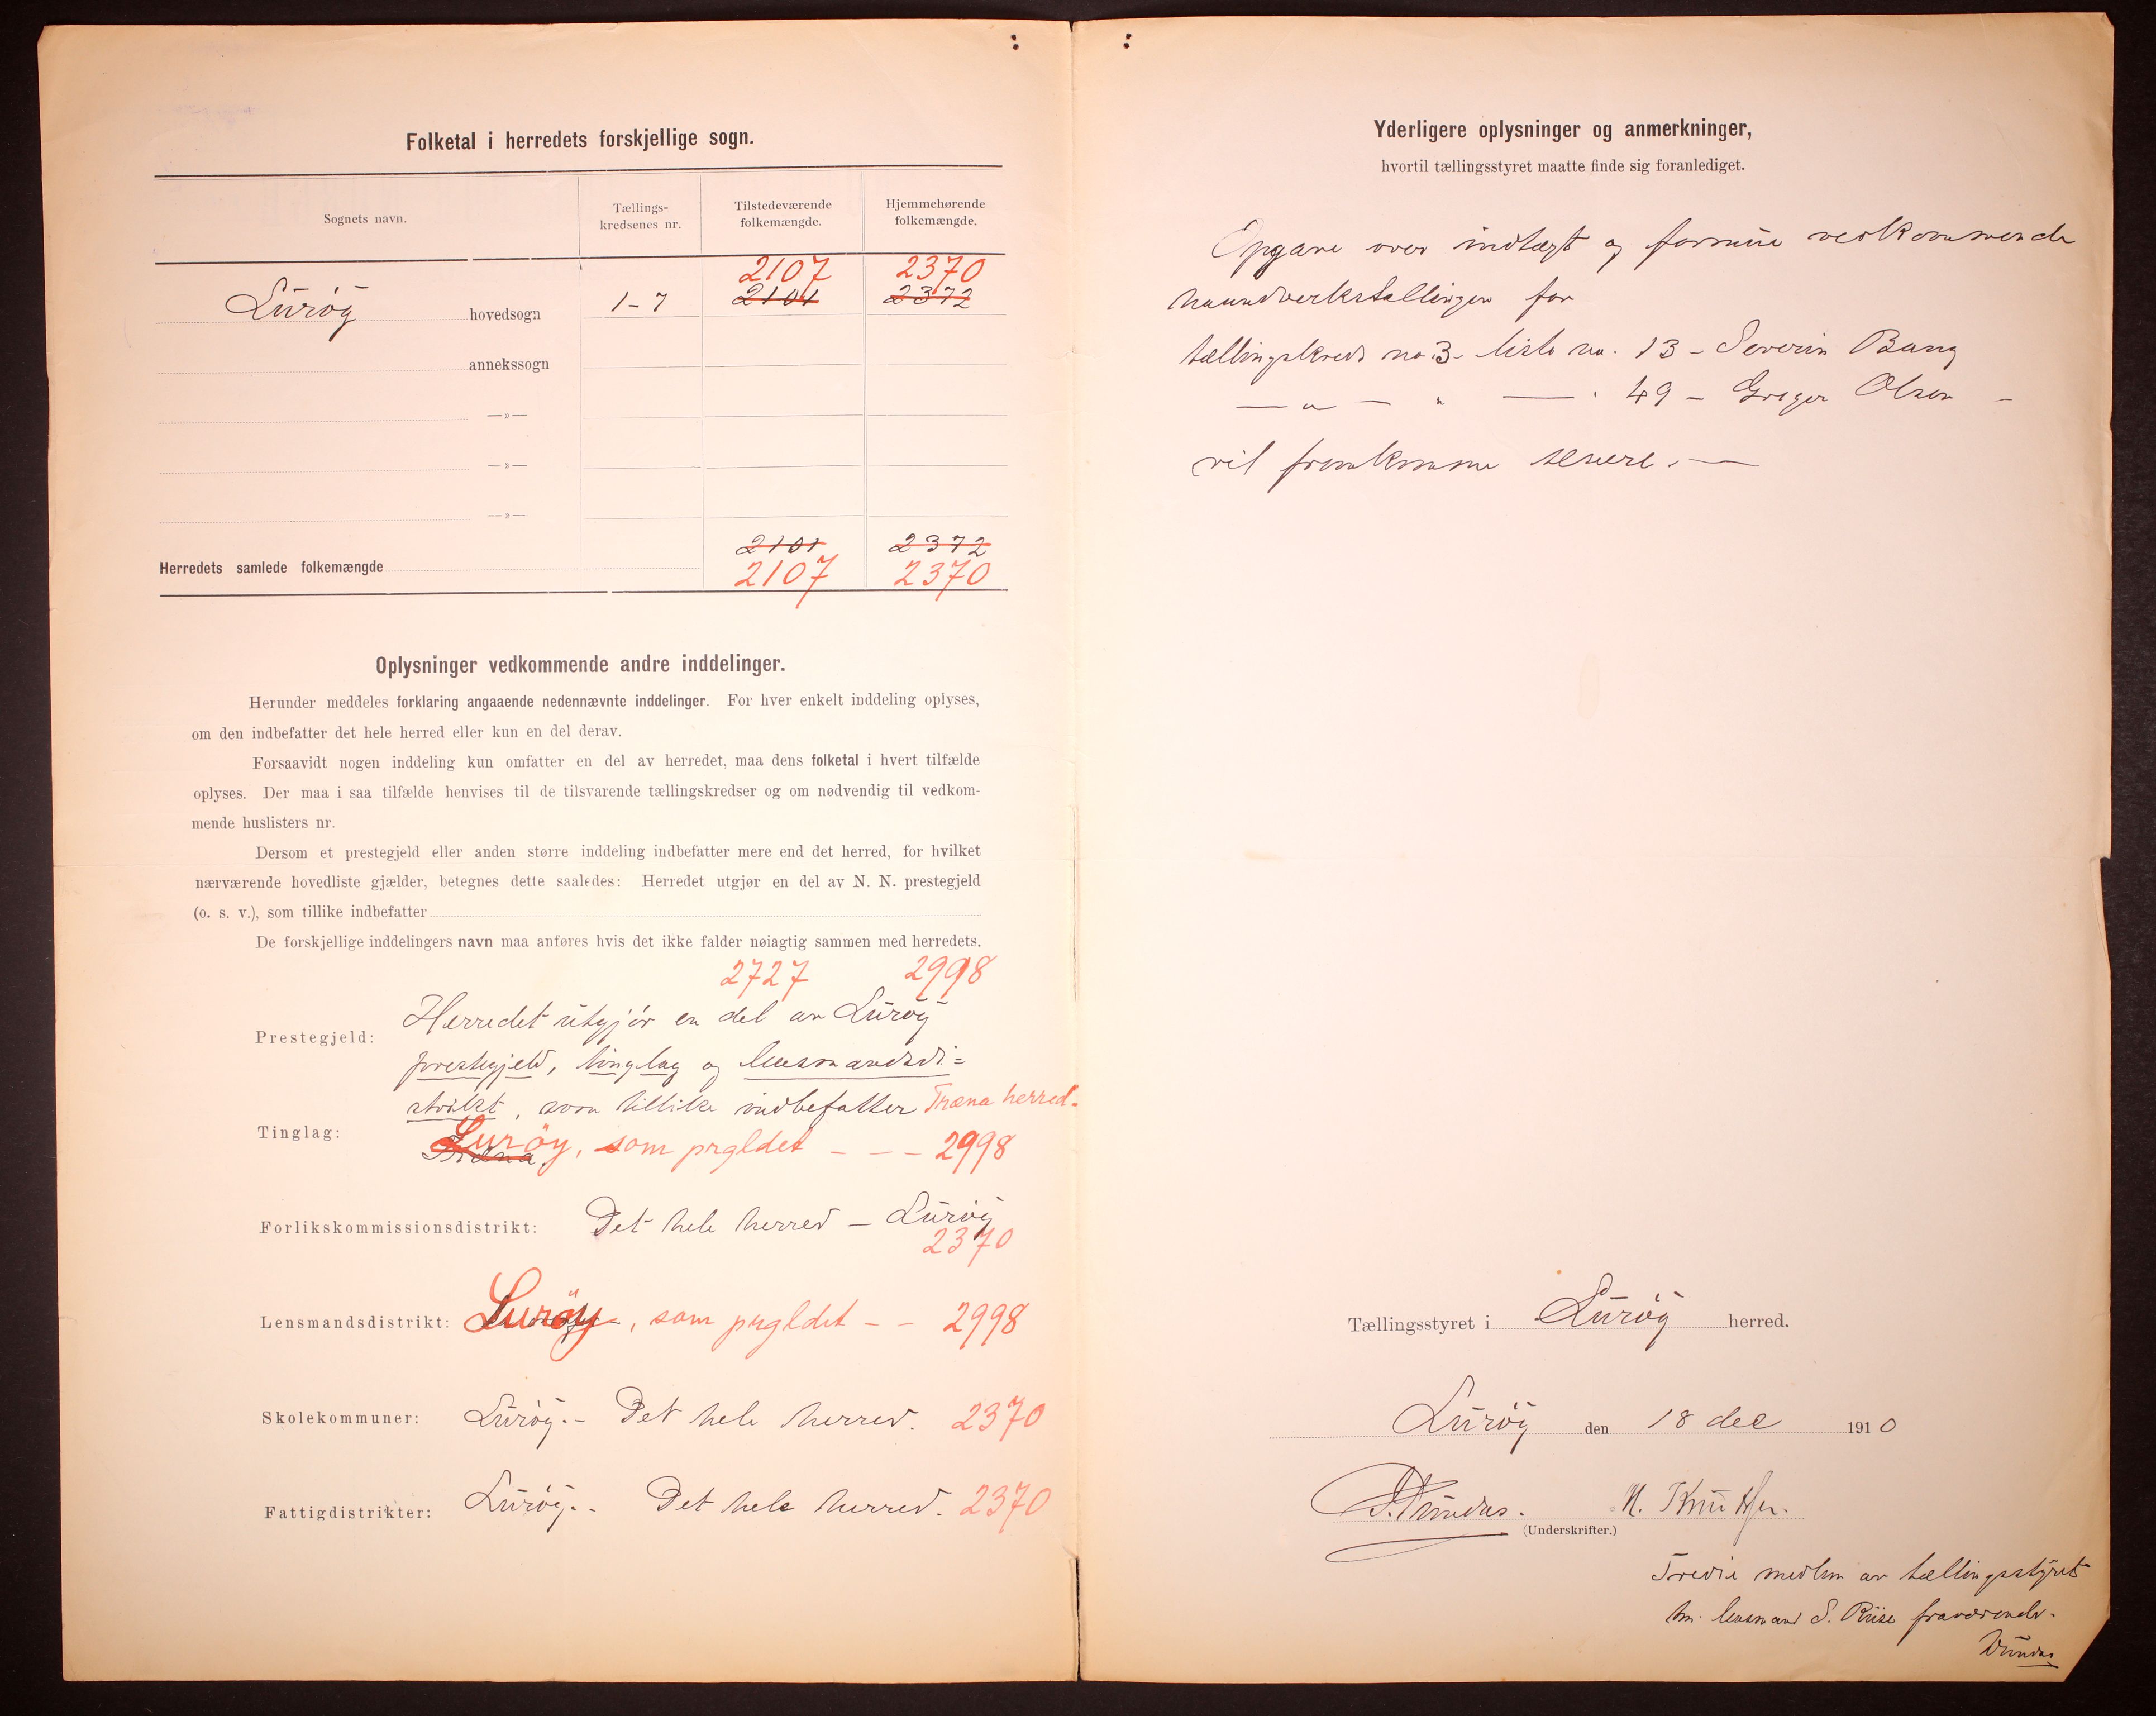 Folketal i herredets forskjellige sogn.
Sognets navn.
Tællings-
kredsenes nr.
Tilstedeværende
folkemængde.
Hjemmehørende
folkemængde.
2107 2370
Lurøy hovedsogn 1-7 2101 2372
annekssogn
—»—
—»—
—»—
2101 2372
Herredets samlede folkemængde
2107 2370
Oplysninger vedkommende andre inddelinger.
Herunder meddeles forklaring angaaende nedennævnte inddelinger. For hver enkelt inddeling oplyses,
om den indbefatter det hele herred eller kun en del derav.
Forsaavidt nogen inddeling kun omfatter en del av herredet, maa dens folketal i hvert tilfælde
oplyses. Der maa i saa tilfælde henvises til de tilsvarende tællingskredser og om nødvendig til vedkom-
mende huslisters nr.
Dersom et prestegjeld eller anden større inddeling indbefatter mere end det herred, for hvilket
nærværende hovedliste gjælder, betegnes dette saaledes: Herredet utgjør en del av N. N. prestegjeld
(o. s. v.), som tillike indbefatter
De forskjellige inddelingers navn maa anføres hvis det ikke falder nøiagtig sammen med herredets.
2727 2998
Prestegjeld: Herredet utgjør en del av Lurøy
prestegjeld, tinglag og lensmandsdi=
strikt, som tillike indbefatter Træna herred.
Tinglag: Træna Lurøy, som prgldet - - - 2998
Forlikskommissionsdistrikt: Det hele herred - Lurøy
2370
Lensmandsdistrikt: Lurøy, som prgldet - - 2998
Skolekommuner: Lurøy.- Det hele herred. 2370
Fattigdistrikter: Lurøy.- Det hele herred. 2370
Yderligere oplysninger og anmerkninger,
hvortil tællingsstyret maatte finde sig foranlediget.
Opgave over indtægt og formue vedkommende
haandverkstællingen for
tællingskreds no 3 - liste no. 13 - Severin Bang
— " — " — . 49 - Greger Olsen -
vil fremkomme senere. —
Tællingsstyret i Lurøy herred.
Lurøy den 18 dec 1910
Dundas. N. Knutsen.
(Underskrifter.)
Tredie medlem av tællingsstyret
hr. lensmand S. Riise fraværende.
Dundas